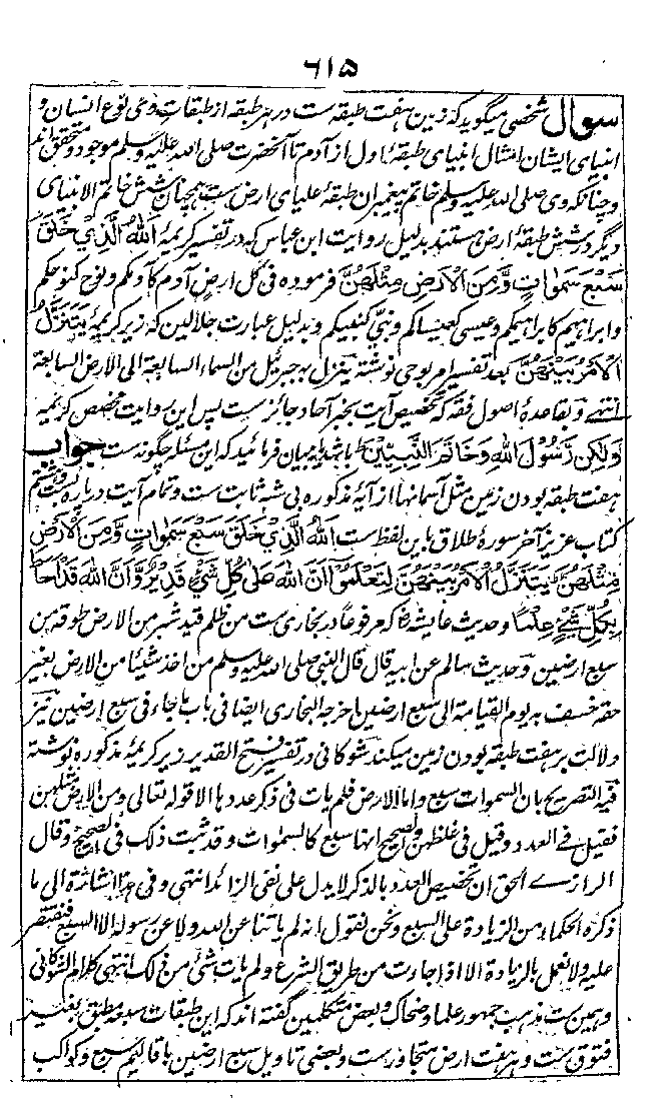 ۶۱۵
سوال شخصی میگوید که زمین هفت طبقه ست در هر طبقه از طبقات وی نوع انسان و
انبیای ایشان امثال انبیای طبقۂ اول از آدم تا آنحضرت صلی الله علیه وسلم موجود و متحقق اند
و چنانکه وی صلی الله علیه وسلم خاتم پیغمبران طبقۂ علیای ارض ست همچنان شش خاتم الانبیای
دیگر در شش طبقۂ ارض هستند بدلیل روایت ابن عباس که در تفسیر کریمۂ اللّٰهُ الَّذِيْ خَلَقَ
سَبْعَ سَمٰوَاتٍ وَّمِنَ الْاَرْضِ مِثْلَهُنَّ فرموده فی کل ارض آدم کآدمکم ونوح کنوحکم
وابراهیم کابراهیمکم وعیسی کعیساکم ونبی کنبیکم و بدلیل عبارت جلالین که زیر کریمۂ يَتَنَزَّلُ
الْاَمْرُ بَيْنَهُنَّ بعد تفسیر امر بوحی نوشته ینزل به جبرئیل من السماء السابعة الی الارض السابعة
انتهے و بقاعدۂ اصول فقه که تخصیص آیت بخبر آحاد جائز ست پس این روایت مخصص کریمۂ
وَلٰكِنْ رَّسُوْلَ اللّٰهِ وَخَاتَمَ النَّبِيّيْنَ باشد یا نه بیان فرمائید که این مسئله چگونه ست جواب
هفت طبقه بودن زمین مثل آسمانها از آیۂ مذکوره بی شبه ثابت ست و تمام آیت در پاره بست و هشتم
کتاب عزیز آخر سورۂ طلاق باین لفظ ست اَللّٰهُ الَّذِيْ خَلَقَ سَبْعَ سَمٰوَاتٍ وَّمِنَ الْاَرْضِ
مِثْلَهُنَّ يَتَنَزَّلُ الْاَمْرُ بَيْنَهُنَّ لِتَعْلَمُوْا اَنَّ اللّٰهَ عَلٰى كُلِّ شَيْءٍ قَدِيْرٌ وَّاَنَّ اللّٰهَ قَدْ اَحَاطَ
بِكُلِّ شَيْءٍ عِلْمًا و حدیث عایشه که مرفوعاً در بخاری ست من ظلم قید شبر من الارض طوقه من
سبع ارضین و حدیث سالم عن ابیه قال قال النبی صلی الله علیه وسلم من اخذ شیئا من الارض بغیر
حقه خسف به یوم القیامة الی سبع ارضین اخرجه البخاری ایضا فی باب ما جاء فی سبع ارضین نیز
دلالت بر هفت طبقه بودن زمین میکند شوکانی در تفسیر فتح القدیر زیر کریمۂ مذکوره نوشته
فیه التصریح بان السموات سبع واما الارض فلم یات فی ذکر عددها الا قوله تعالی ومن الارض مثلهن
فقیل فے العدد وقیل فی غلظهن والصحیح انها سبع کالسموات وقد ثبت ذلک فی الصحیح وقال
الرازے الحق ان تخصیص العدد بالذکر لا یدل علی نفی الزائد انتهی وفی هذا اشارة الی ما
ذکره الحکماء من الزیادة علی السبع ونحن نقول انه لم یاتنا عن الله ولا عن رسوله الا السبع فنقتصر
علیه ولا نعمل بالزیادة الا اذا جاءت من طریق الشرع ولم یات شئ من ذلک انتهی کلام الشوکانی
و همین ست مذهب جمهور علما و ضحاک و بعض متکلمین گفته اند که این طبقات سبعه مطبق بغیر
فتوق ست و هر هفت ارض متجاور ست و بعضی تاویل سبع ارضین باقالیم سبع و کواکب